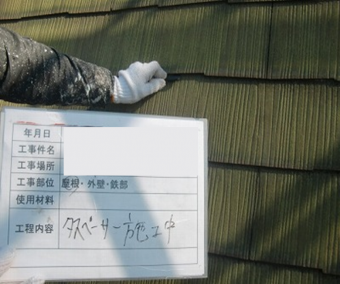 年月日
工事件名
工事場所
工事部位 屋根・外壁・鉄部
使用材料
工程内容 タスペーサー施工中